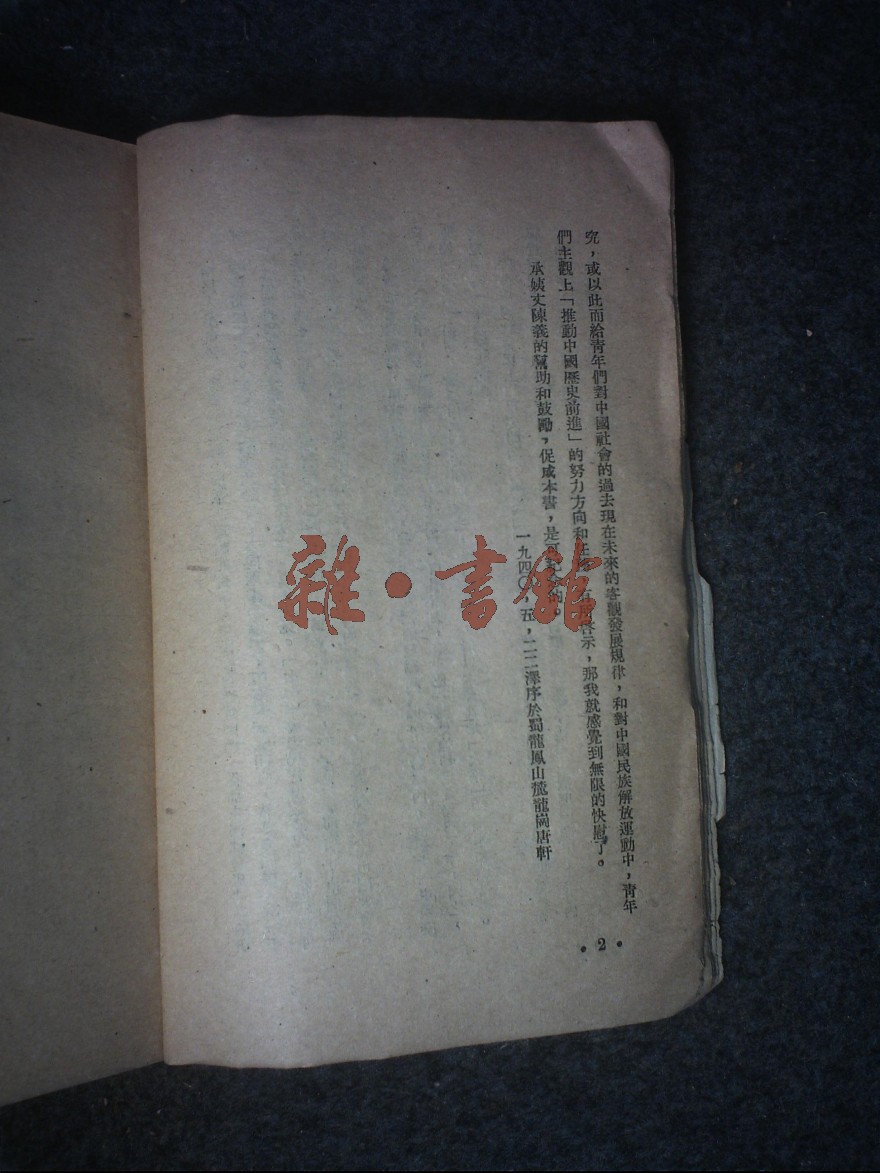 究，或以此而給青年們對中國社會的過去現在未來的客觀發展規律，和對中國民族解放運動中，青年
們主觀上「推動中國歷史前進」的努力方向和 示，那我就感覺到無限的快慰了。
承姨丈陳義的幫助和鼓勵，促成本書，是 的。
一九四〇，五，二二澤序於蜀龍鳳山麓龍崗唐軒
•2•
雜•書館